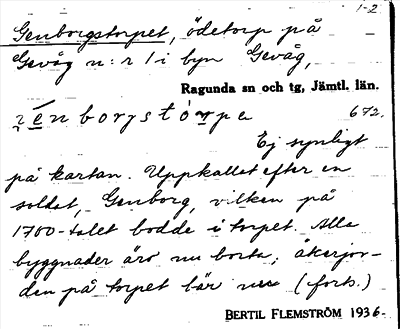 1-2
Genborgstorpet, ödetorp på
Gevåg n:r 1 i byn Gevåg,
Ragunda sn och tg, Jämtl. län.
672.
Ej synligt
på kartan. Uppkallet efter en
soldat, Genborg, vilken på
1700-talet bodde i torpet. Alla
byggnader äro nu borta; åkerjor-
den på torpet bär nu (forts.)
BERTIL FLEMSTRÖM 1936-